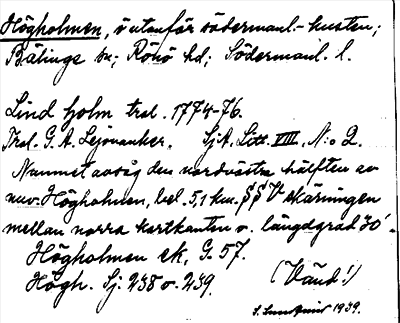 Högholmen, ö utanför södermanl.-kusten;
Bälinge sn; Rönö hd; Södermanl. l.
Lind holm tral. 1774-76.
Tral. G. A. Lejonancker. SjA, Litt. VIII, N:o 2.
Namnet avsåg den nordvästra hälften av
nuv. Högholmen, bel. 5,1 km. SSV skärningen
mellan norra kartkanten o. längdgrad 30'.
Högholmen ek. G. 57.
Högh. Sj: 238 o. 239. (Vänd!)
1939.